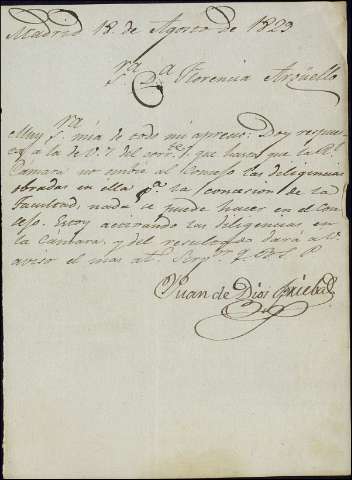 Madrid 18 de Agosto de 1829
S.ra D.a Florencia Argüello
Muy S.ra mia de todo mi aprecio: Doy respues
ta á la de V. 7 del q.e hasta que la R.l
Camara no embie al Consejo las diligencias
obradas en ella p.a la concesion de la
facultad, nada se puede hacer en el Con
sejo. Estoy activando las diligencias en
la Camara, y del resultado dará á V.
aviso el mas at.o Ser.or Q. S. P. B.
Juan de Dios